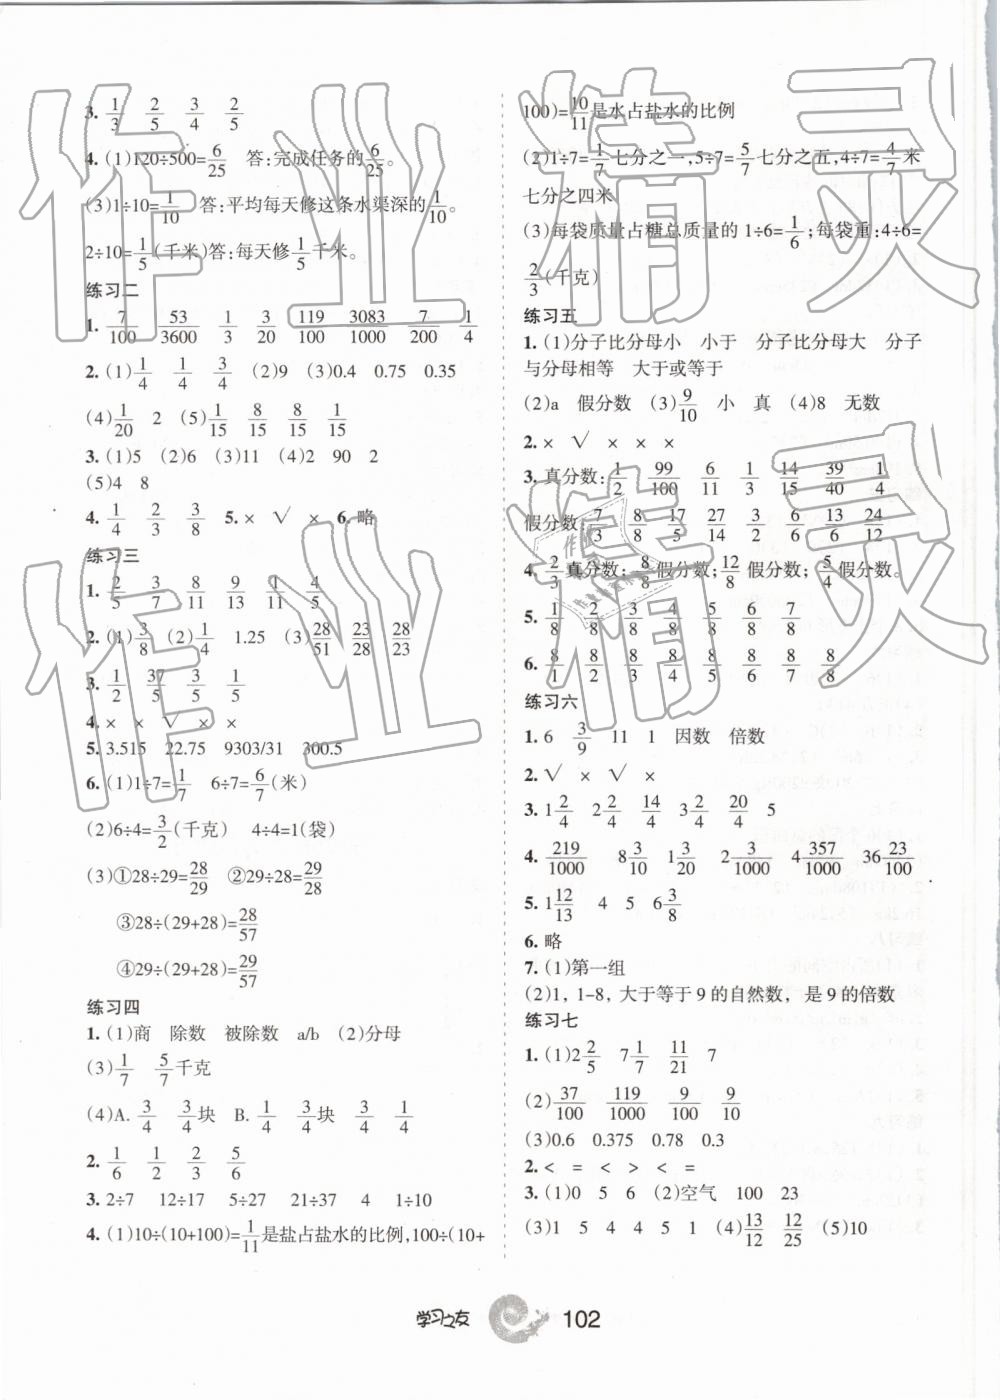 3. 1/3 2/5 3/4 2/5
4. (1)120÷500=6/25 答:完成任务的6/25。
(3)1÷10=1/10 答:平均每天修这条水渠深的1/10。
2÷10=1/5(千米)答:每天修1/5千米。
练习二
1. 7/100 53/3600 1/3 3/20 119/100 3083/1000 7/200 1/4
2. (1)1/4 1/4 3/4 (2)9 (3)0.4 0.75 0.35
(4)1/20 2 (5)1/15 8/15 8/15 1/15
3. (1)5 (2)6 (3)11 (4)2 90 2
(5)4 8
4. 1/4 2/3 3/8 5. × √ × 6. 略
练习三
1. 2/5 3/7 8/11 9/13 1/11 4/5
2. (1)3/8 (2)1/4 1.25 (3)28/51 23/28 28/23
3. 1/2 37/5 3/5 1/5
4. × × √ × ×
5. 3.515 22.75 9303/31 300.5
6. (1)1÷7=1/7 6÷7=6/7(米)
(2)6÷4=3/2(千克) 4÷4=1(袋)
(3)①28÷29=28/29 ②29÷28=29/28
③28÷(29+28)=28/57
④29÷(29+28)=29/57
练习四
1. (1)商 除数 被除数 a/b (2)分母
(3)1/7 5/7千克
(4)A. 3/4 3/4块 B. 1/4 3/4块 3/4 1/4
2. 1/6 1/2 2/3 5/6
3. 2÷7 12÷17 5÷27 21÷37 4 1÷10
4. (1)10÷(10+100)=1/11是盐占盐水的比例,100÷(10+
100)=10/11是水占盐水的比例
(2)1÷7=1/7七分之一,5÷7=5/7七分之五,4÷7=4/7米
七分之四米
(3)每袋质量占糖总质量的1÷6=1/6;每袋重:4÷6=
2/3(千克)
练习五
1. (1)分子比分母小 小于 分子比分母大 分子
与分母相等 大于或等于
(2)a 假分数 (3)9/10 小 真 (4)8 无数
2. × √ × × ×
3. 真分数:1/2 99/100 6/11 1/3 14/15 39/40 1/4
假分数:7/3 8/8 17/5 27/14 3/2 6/6 13/6 24/12
4. 2/3真分数;8/8假分数;12/8假分数;5/4假分数。
5. 1/8 2/8 3/8 4/8 5/8 6/8 7/8
6. 8/1 8/2 8/3 8/4 8/5 8/6 8/7 8/8
练习六
1. 6 3/9 11 1 因数 倍数
2. √ × √ ×
3. 1 2/4 2 2/4 14/4 3 2/4 20/4 5
4. 219/1000 8 3/10 1 3/20 2 3/1000 4 357/1000 36 23/100
5. 1 12/13 4 5 6 3/8
6. 略
7. (1)第一组
(2)1, 1-8, 大于等于9的自然数, 是9的倍数
练习七
1. (1)2 2/5 7 1/7 11/21 7
(2)37/100 119/1000 9/100 9/10
(3)0.6 0.375 0.78 0.3
2. < = < > < =
3. (1)0 5 6 (2)空气 100 23
(3)1 5 4 4 5 1 (4)13/12 12/25 (5)10
学习之友 102
作业精灵
作业精灵